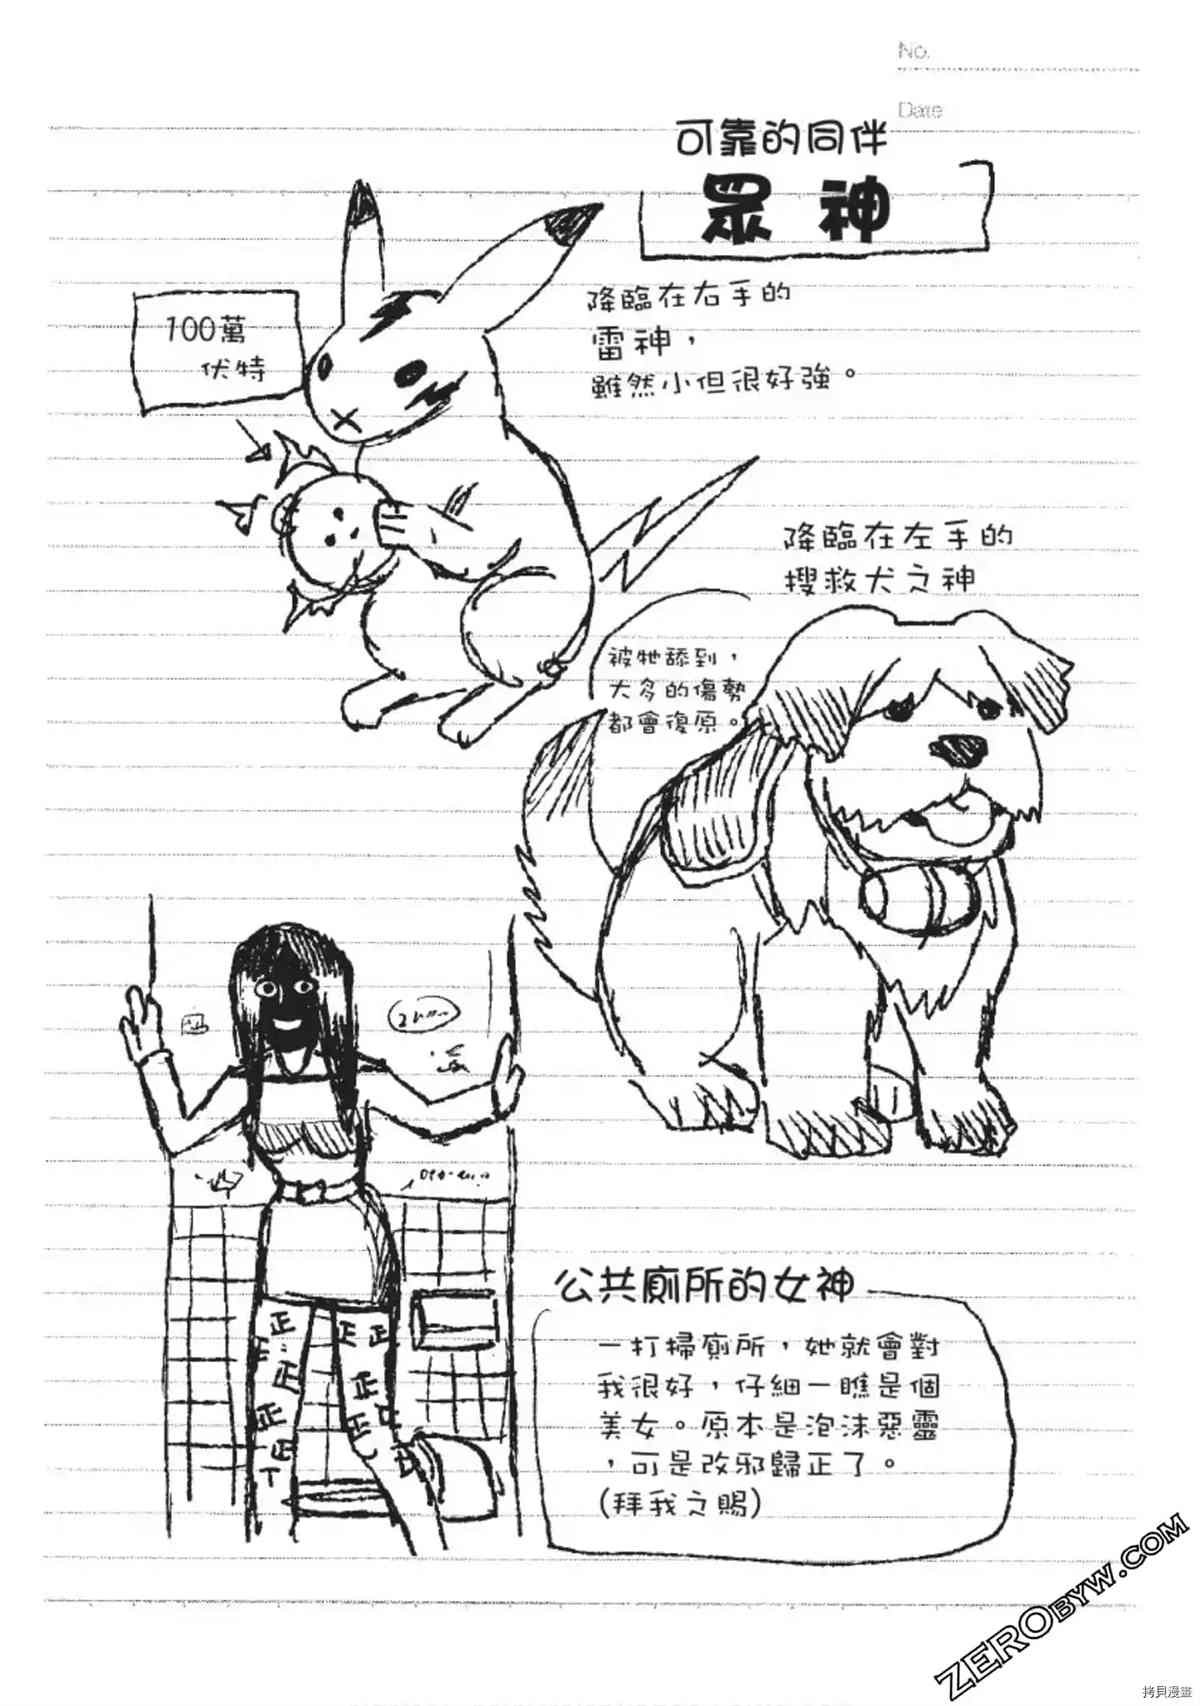 No.
Date
可靠的同伴
眾神
降臨在右手的
雷神，
雖然小但很好強。
100萬
伏特
降臨在左手的
搜救犬之神
被牠舔到，
大多的傷勢
都會復原。
公共廁所的女神
一打掃廁所，她就會對
我很好，仔細一瞧是個
美女。原本是泡沫惡靈
，可是改邪歸正了。
(拜我之賜)
正 正 正
正 正 正
正 正
正 正
T
ZEROBYW.COM
拷貝漫畫